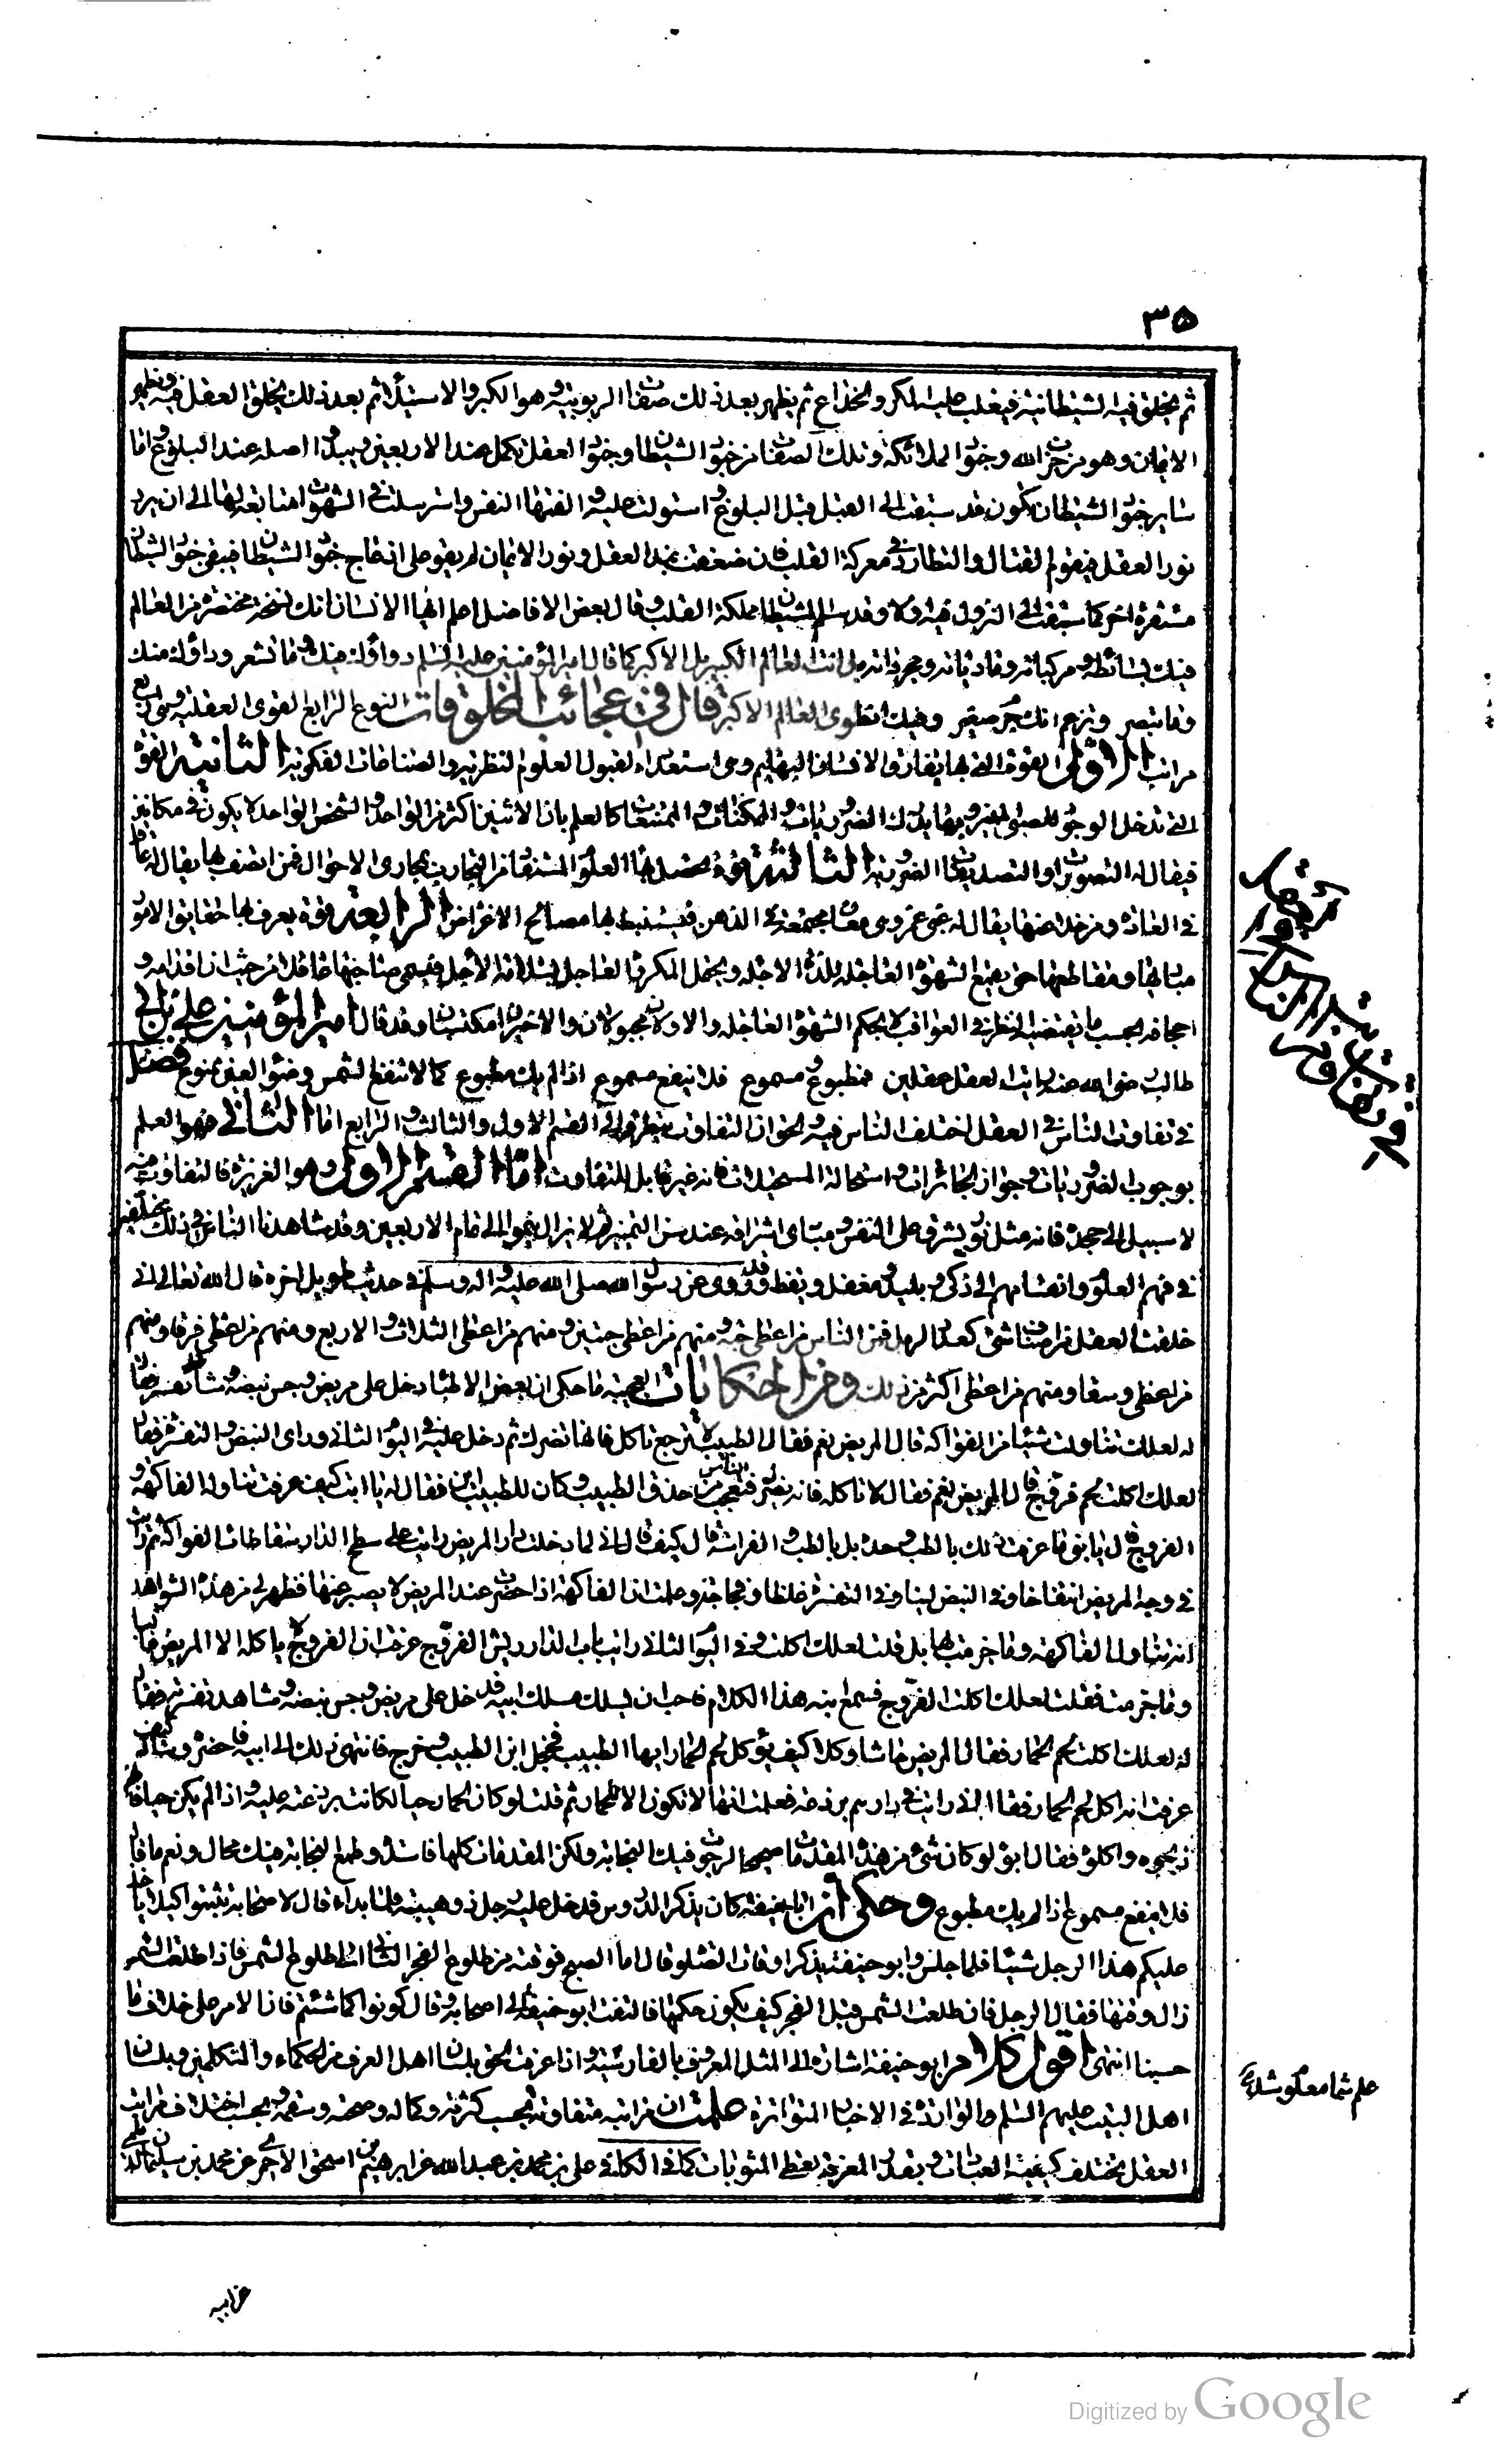 ٣٥
ثم يخلق فيه الشيطانية فيغلب عليه المكر والخداع ثم يظهر بعد ذلك صفات الربوبية وهو الكبر والاستيلاء ثم بعد ذلك يخلق العقل فيه ويظهر
الايمان وهو من حزب الله وجنود الملائكة وتلك الصفات من جنود الشيطان وجنود العقل تكمل عند الاربعين ويبدو اصله عند البلوغ واما
ساير جنود الشيطان يكون قد سبقت الى القلب قبل البلوغ واستولت عليه والفتها النفس واسترسلت في الشهوات متابعة لها الى ان يرد
نور العقل فيقوم القتال والتطارد في معركة القلب فان ضعفت جند العقل ونور الايمان لم يقو على ازعاج جنود الشيطان فيبقى جنود الشيطان
مستقرة اخرا كما سبقت الى النزول فيه اولا وقد سلم للشيطان مملكة القلب وقال بعض الافاضل اعلم ايها الانسان انك نسخة مختصرة من العالم
فيك بسائطه ومركباته ومادياته ومجرداته بل انت العالم الكبير بل الاكبر كما قال امير المؤمنين عليه السلم دواؤك فيك وما تشعر وداؤك منك
وما تبصر وتزعم انك جرم صغير وفيك انطوى العالم الاكبر قال في عجائب المخلوقات النوع الرابع القوى العقلية وهي اربع
مراتب الاولى القوة التي بها يفارق الانسان البهايم وهي استعداده لقبول العلوم النظرية والصناعات الفكرية الثانية القوة
التي تدخل الوجود للصبي المميز وبها يدرك الضروريات والممكنات والممتنعات كالعلم بان الاثنين اكثر من الواحد والشخص الواحد لا يكون في مكانين
فيقال له التصورات او التصديقات الضرورية الثالثة قوة تحصل بها العلوم المستفادة من التجارب بمجاري الاحوال فمن اتصف بها يقال له عاقل
في العادة ومن خلا عنها يقال له غبي غمر وهي معان مجتمعة في الذهن فيستنبط بها مصالح الاغراض الرابعة قوة يعرف بها حقايق الامور
مباديها ومقاطعها حتى يقمع الشهوة العاجلة للذة الاجلة ويحمل المكروه العاجل لسلامة الاجل فيسمى صاحبها عاقلا من حيث ان اقدامه و
احجامه بحسب ما يقتضيه النظر في العواقب لا بحكم الشهوة العاجلة والاوليان مجبولان والاخيران مكتسبان وقد قال امير المؤمنين علي بن ابي
طالب رضوان الله عليه رايت العقل عقلين فمطبوع ومسموع فلا ينفع مسموع اذا لم يك مطبوع كما لا تنفع الشمس وضوء العين ممنوع فصل
في تفاوت الناس في العقل اختلف الناس فيه والحق ان التفاوت يتطرق الى القسم الاول والثالث والرابع اما الثاني فهو العلم
بوجوب الضروريات وجواز الجائزات واستحالة المستحيلات فانه غير قابل للتفاوت اما القسم الاول وهو الغريزة فالتفاوت فيه
لا سبيل الى جحده فانه مثل نور يشرق على النفس ومبادي اشراقه عند سن التميز ثم لا يزال ينمو الى تمام الاربعين وقد شاهدنا الناس في ذلك مختلفين
في فهم العلوم وانقسامهم الى ذكي وبليد ومغفل ويقظ وقد روى عن رسول الله صلى الله عليه واله وسلم في حديث طويل اخره قال الله تعالى اني
خلقت العقل اصنافا شتى كعدد الرمل فمن الناس من اعطي حبة ومنهم من اعطي حبتين ومنهم من اعطي الثلاث والاربع ومنهم من اعطي فرقا ومنهم
من اعطي وسقا ومنهم من اعطي اكثر من ذلك ومن الحكايات العجيبة ما حكى ان بعض الاطباء دخل على مريض وجس نبضه وشاهد تفسرته فقال
له لعلك تناولت شيئا من الفواكه قال المريض نعم فقال الطبيب لا ترجع تاكل فانها تضرك ثم دخل عليه في اليوم الثاني وراى النبض والتفسرة فقال
لعلك اكلت لحم فروج قال المريض نعم فقال لا تاكله فانه يضرك فتعجب الناس من حذق الطبيب وكان للطبيب ابن فقال له يا ابت كيف عرفت تناوله الفاكهة و
الفروج قال يا بني ما عرفت ذلك بالطب وحده بل بالطب والفراسة قال كيف قال اني لما دخلت دار المريض رايت على سطح الدار سقاطات الفواكه ثم رايت
في وجه المريض انتفاخا وفي النبض لينا وفي التفسرة غلظا وفجاجة وعلمت ان الفاكهة اذا حضرت عند المريض لا يصبر عنها فظهر لي من هذه الشواهد
انه تناول الفاكهة وما جزمت بها بل قلت لعلك اكلت وفي اليوم الثاني رايت بباب الدار ريش الفروج عرفت ان الفروج لا ياكله الا المريض غالبا
وما جزمت فقلت لعلك اكلت الفروج فسمع ابنه هذا الكلام فاحب ان يسلك مسلك ابيه فدخل على مريض وجس نبضه وشاهد تفسرته فقال
له لعلك اكلت لحم الحمار فقال المريض حاشا وكلا كيف يؤكل لحم الحمار ايها الطبيب فخجل ابن الطبيب وخرج فانتهى ذلك الى ابيه فاحضره وساله كيف
عرفت انه اكل لحم الحمار فقال اني رايت في دارهم برذعة فعلمت انها لا تكون الا للحمار ثم قلت لو كان الحمار حيا لكانت برذعته عليه واذا لم يكن حيا فانهم
ذبحوه واكلوه فقال ابوه لو كان شئ من هذه المقدمات صحيحا لرجوت فيك النجابة ولكن المقدمات كلها فاسدة وطمع النجابة فيك محال ونعم ما قال
فلا ينفع مسموع اذا لم يك مطبوع وحكي ان ابا حنيفة كان يذكر الدروس فدخل عليه رجل ذو هيبة فلما بداه قال لاصحابه تثبتوا كيلا ياخذ
عليكم هذا الرجل شيئا فلما جلس وابو حنيفة يذكر اوقات الصلوة قال اما الصبح فوقته من طلوع الفجر الثاني الى طلوع الشمس فاذا طلعت الشمس
زال وقتها فقال الرجل فان طلعت الشمس قبل الفجر كيف يكون حكمها فالتفت ابو حنيفة الى اصحابه وقال كونوا كما شئتم فان الامر على خلاف ما
حسبنا انتهى اقول كلام ابو حنيفة اشارة الى المثل المعروف بالفارسية واذا عرفت الحق بلسان اهل العرف من الحكماء والمتكلمين وبلسان
اهل البيت عليهم السلم والواردة في الاخبار المتواترة علمت ان مراتبه متفاوتة بحسب كثرته وكماله وصحته وسقمه وبحسب اختلاف مراتب
العقل يختلف كيفية العبادات وبقدر المعرفة يعطى المثوبات كما في الكافي علي بن محمد بن عبدالله عن ابرهيم بن اسحق الاحمر عن محمد بن سليمان الديلمي
في تفاوت الناس
علم شما معكو شد
عن ابيه
Digitized by Google